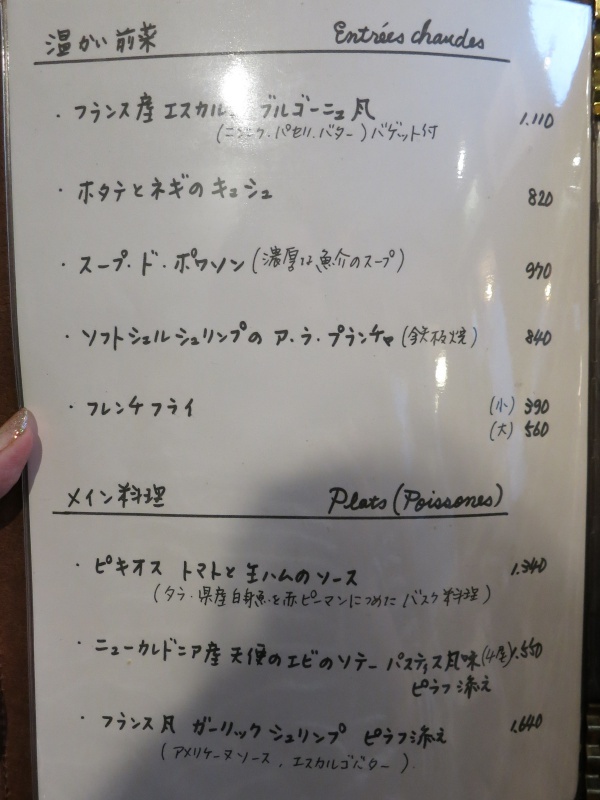 温かい前菜 Entrées chaudes
・フランス産 エスカルゴ ブルゴーニュ風 1.110
(ニンニク・パセリ・バター) バゲット付
・ホタテとネギの キッシュ 820
・スープ・ド・ポワソン (濃厚な魚介のスープ) 970
・ソフトシェルシュリンプの ア・ラ・プランチャ (鉄板焼) 840
・フレンチフライ (小) 390
(大) 560
メイン料理 Plats (Poissones)
・ピキオス トマトと生ハムのソース 1.340
(タラ・県産白身魚を赤ピーマンにつめた バスク料理)
・ニューカレドニア産 天使のエビのソテー パスティス風味 (4尾) 1.550
ピラフ添え
・フランス風 ガーリックシュリンプ ピラフ添え 1.640
(アメリケーヌソース、エスカルゴバター)